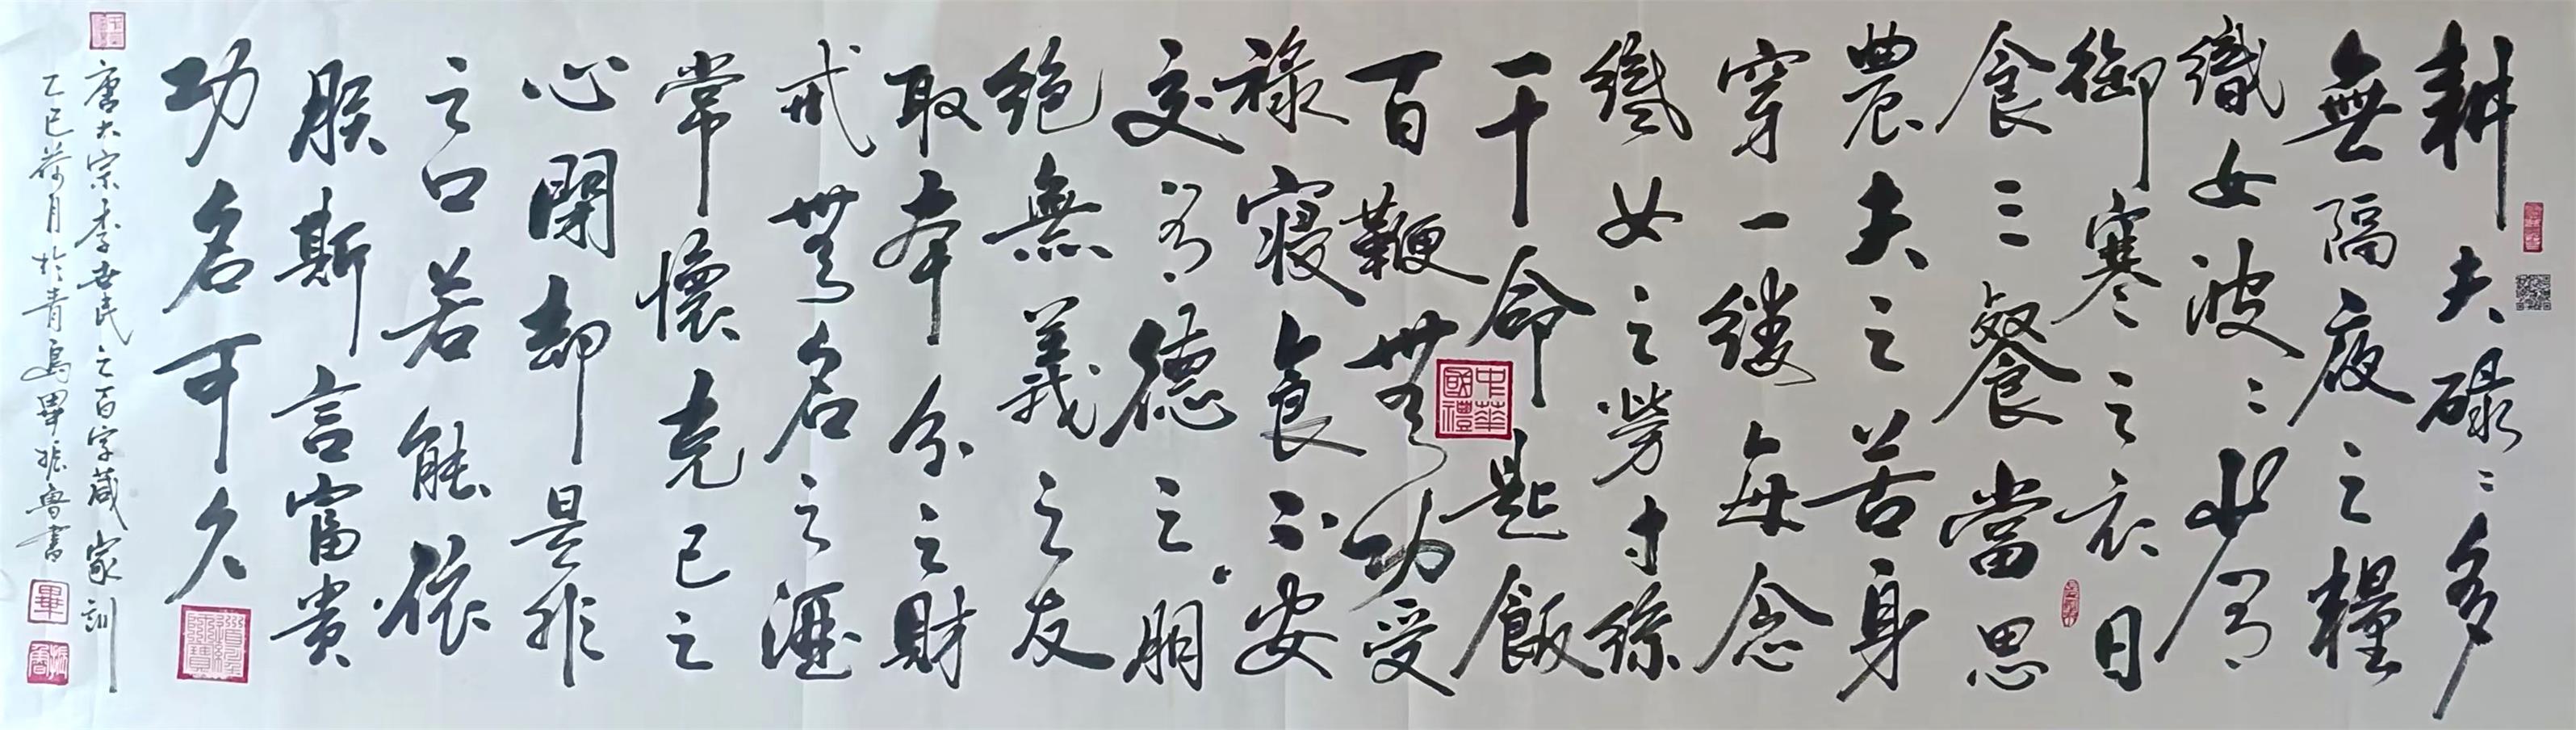 耕夫碌〻多
無隔夜之糧
織女波〻少有
御寒之衣日
食三餐當思
農夫之苦身
穿一缕每念
織女之勞寸絲
千命匙飯
百鞭無功受
祿寝食不安
交有德之朋
絕無義之友
取本分之財
戒無名之酒
常懷克己之
心閉却是非
之口若能依
朕斯言富貴
功名可久
唐太宗李世民之百字箴家訓
乙巳荷月於青島畢振魯書
中華國禮
畢
振魯